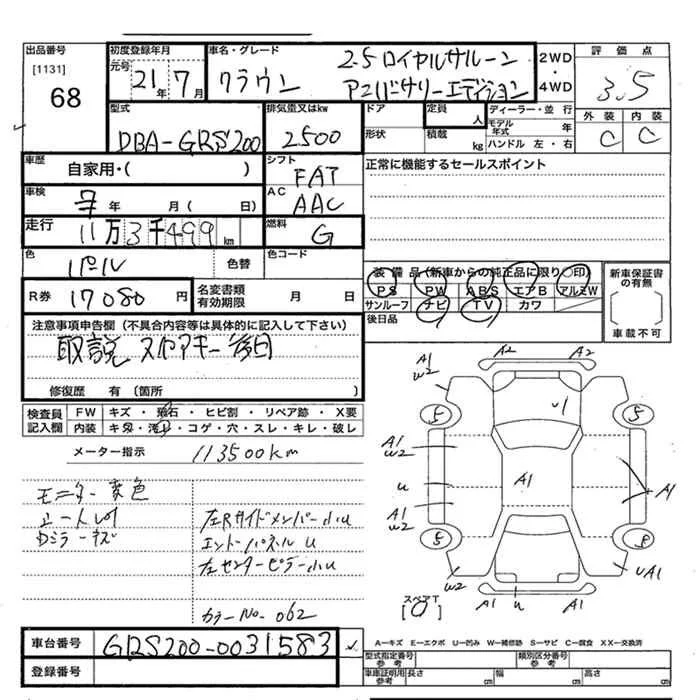 出品番号
[1131]
68
初度登録年月
元号 21年 7月
車名・グレード
クラウン
2.5 ロイヤルサルーン
アニバーサリーエディション
2WD
・
4WD
評価点
3.5
外装 内装
C C
型式
DBA-GRS200
排気量又はkw
2500
ドア
形状
定員
人
積載
kg
ディーラー・並行
モデル年式 年
ハンドル 左・右
車歴
自家用・( )
シフト
FAT
正常に機能するセールスポイント
車検
年 月( 日)
AC
AAC
走行
11万3千499km
燃料
G
色
パール
色替
色コード
装備品(新車からの純正品に限り〇印)
PS PW ABS エアB アルミW
サンルーフ ナビ TV カワ
後日品
新車保証書の有無
車載不可
R券 17080円
名変書類有効期限 月 日
注意事項申告欄(不具合内容等は具体的に記入して下さい)
取説 スペアキー 後日
修復歴 有(箇所 )
検査員記入欄
FW キズ・飛石・ヒビ割・リペア跡・X要
内装 キズ・汚れ・コゲ・穴・スレ・キレ・破レ
メーター指示 113500km
モニター変色
Dミラーキズ
左Rサイドメンバー小U
エンドーパネルU
左センターピラー小U
カラーNo-062
A1
W2
A2 A2
5 5
U1
A1
W2
U
A1
A1
A1
W2
5 8
W2
UA1
スペアT
A1 U A1
車台番号 GRS200-0031583
登録番号
A-キズ E-エクボ U-凹み W-補修跡 S-サビ C-腐食 XX-交換済
型式指定番号
参考
類別区分番号
参考
車庫証明用
参考
長さ cm 幅 cm 高さ cm